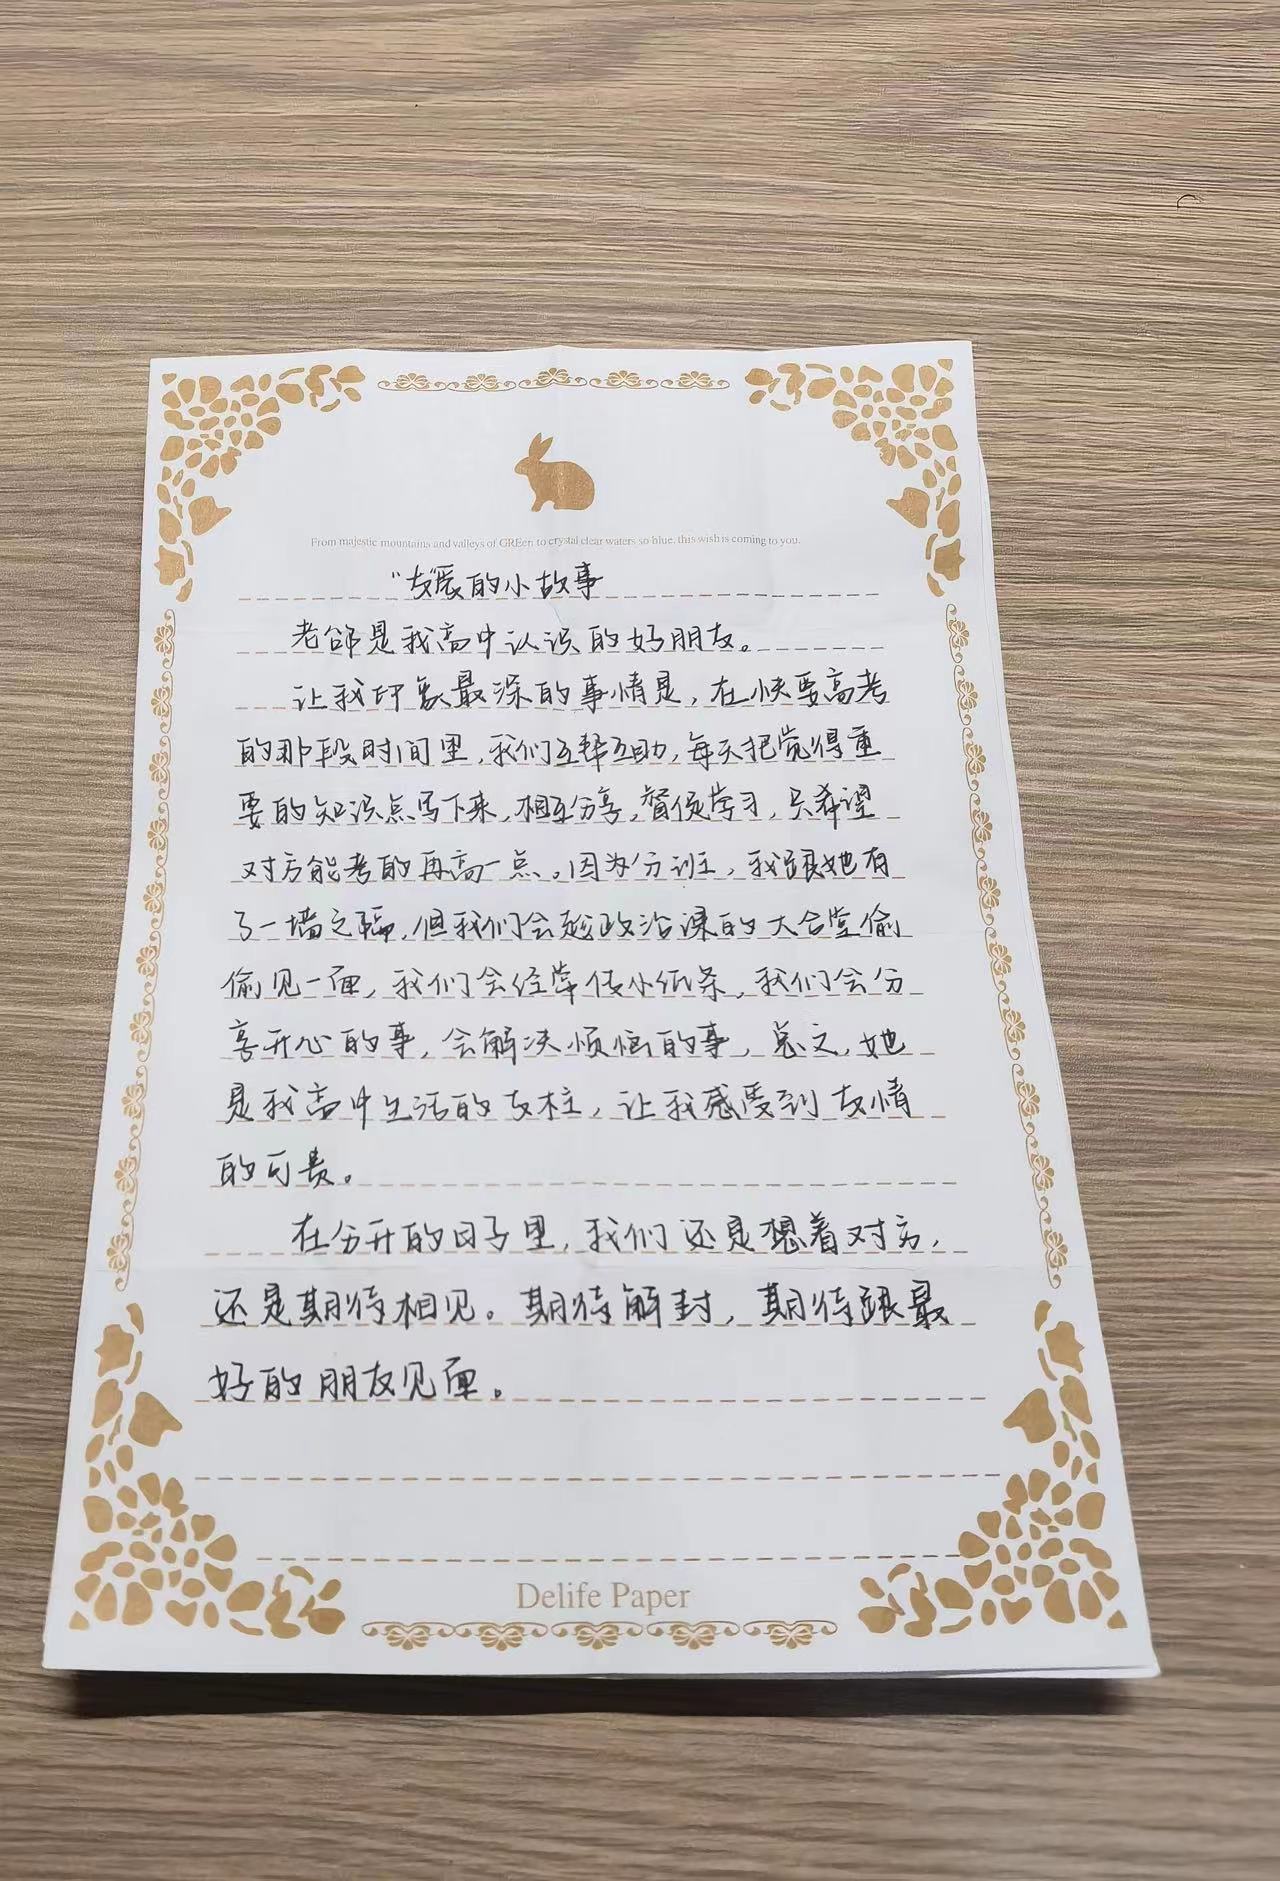 From majestic mountains and valleys of GREen to crystal clear waters so blue, this wish is coming to you.
的小故事
老邰是我高中认识的好朋友。
让我印象最深的事情是，在快要高考
的那段时间里，我们互帮互助，每天把觉得重
要的知识点写下来，相互分享，督促学习，只希望
对方能考的再高一点。因为分班，我跟她有
了一墙之隔，但我们会趁政治课的大合堂偷
偷见一面，我们会经常传小纸条，我们会分
享开心的事，会解决烦恼的事，总之，她
是我高中生活的支柱，让我感受到友情
的可贵。
在分开的日子里，我们还是想着对方，
还是期待相见。期待解封，期待跟最
好的朋友见面。
Delife Paper